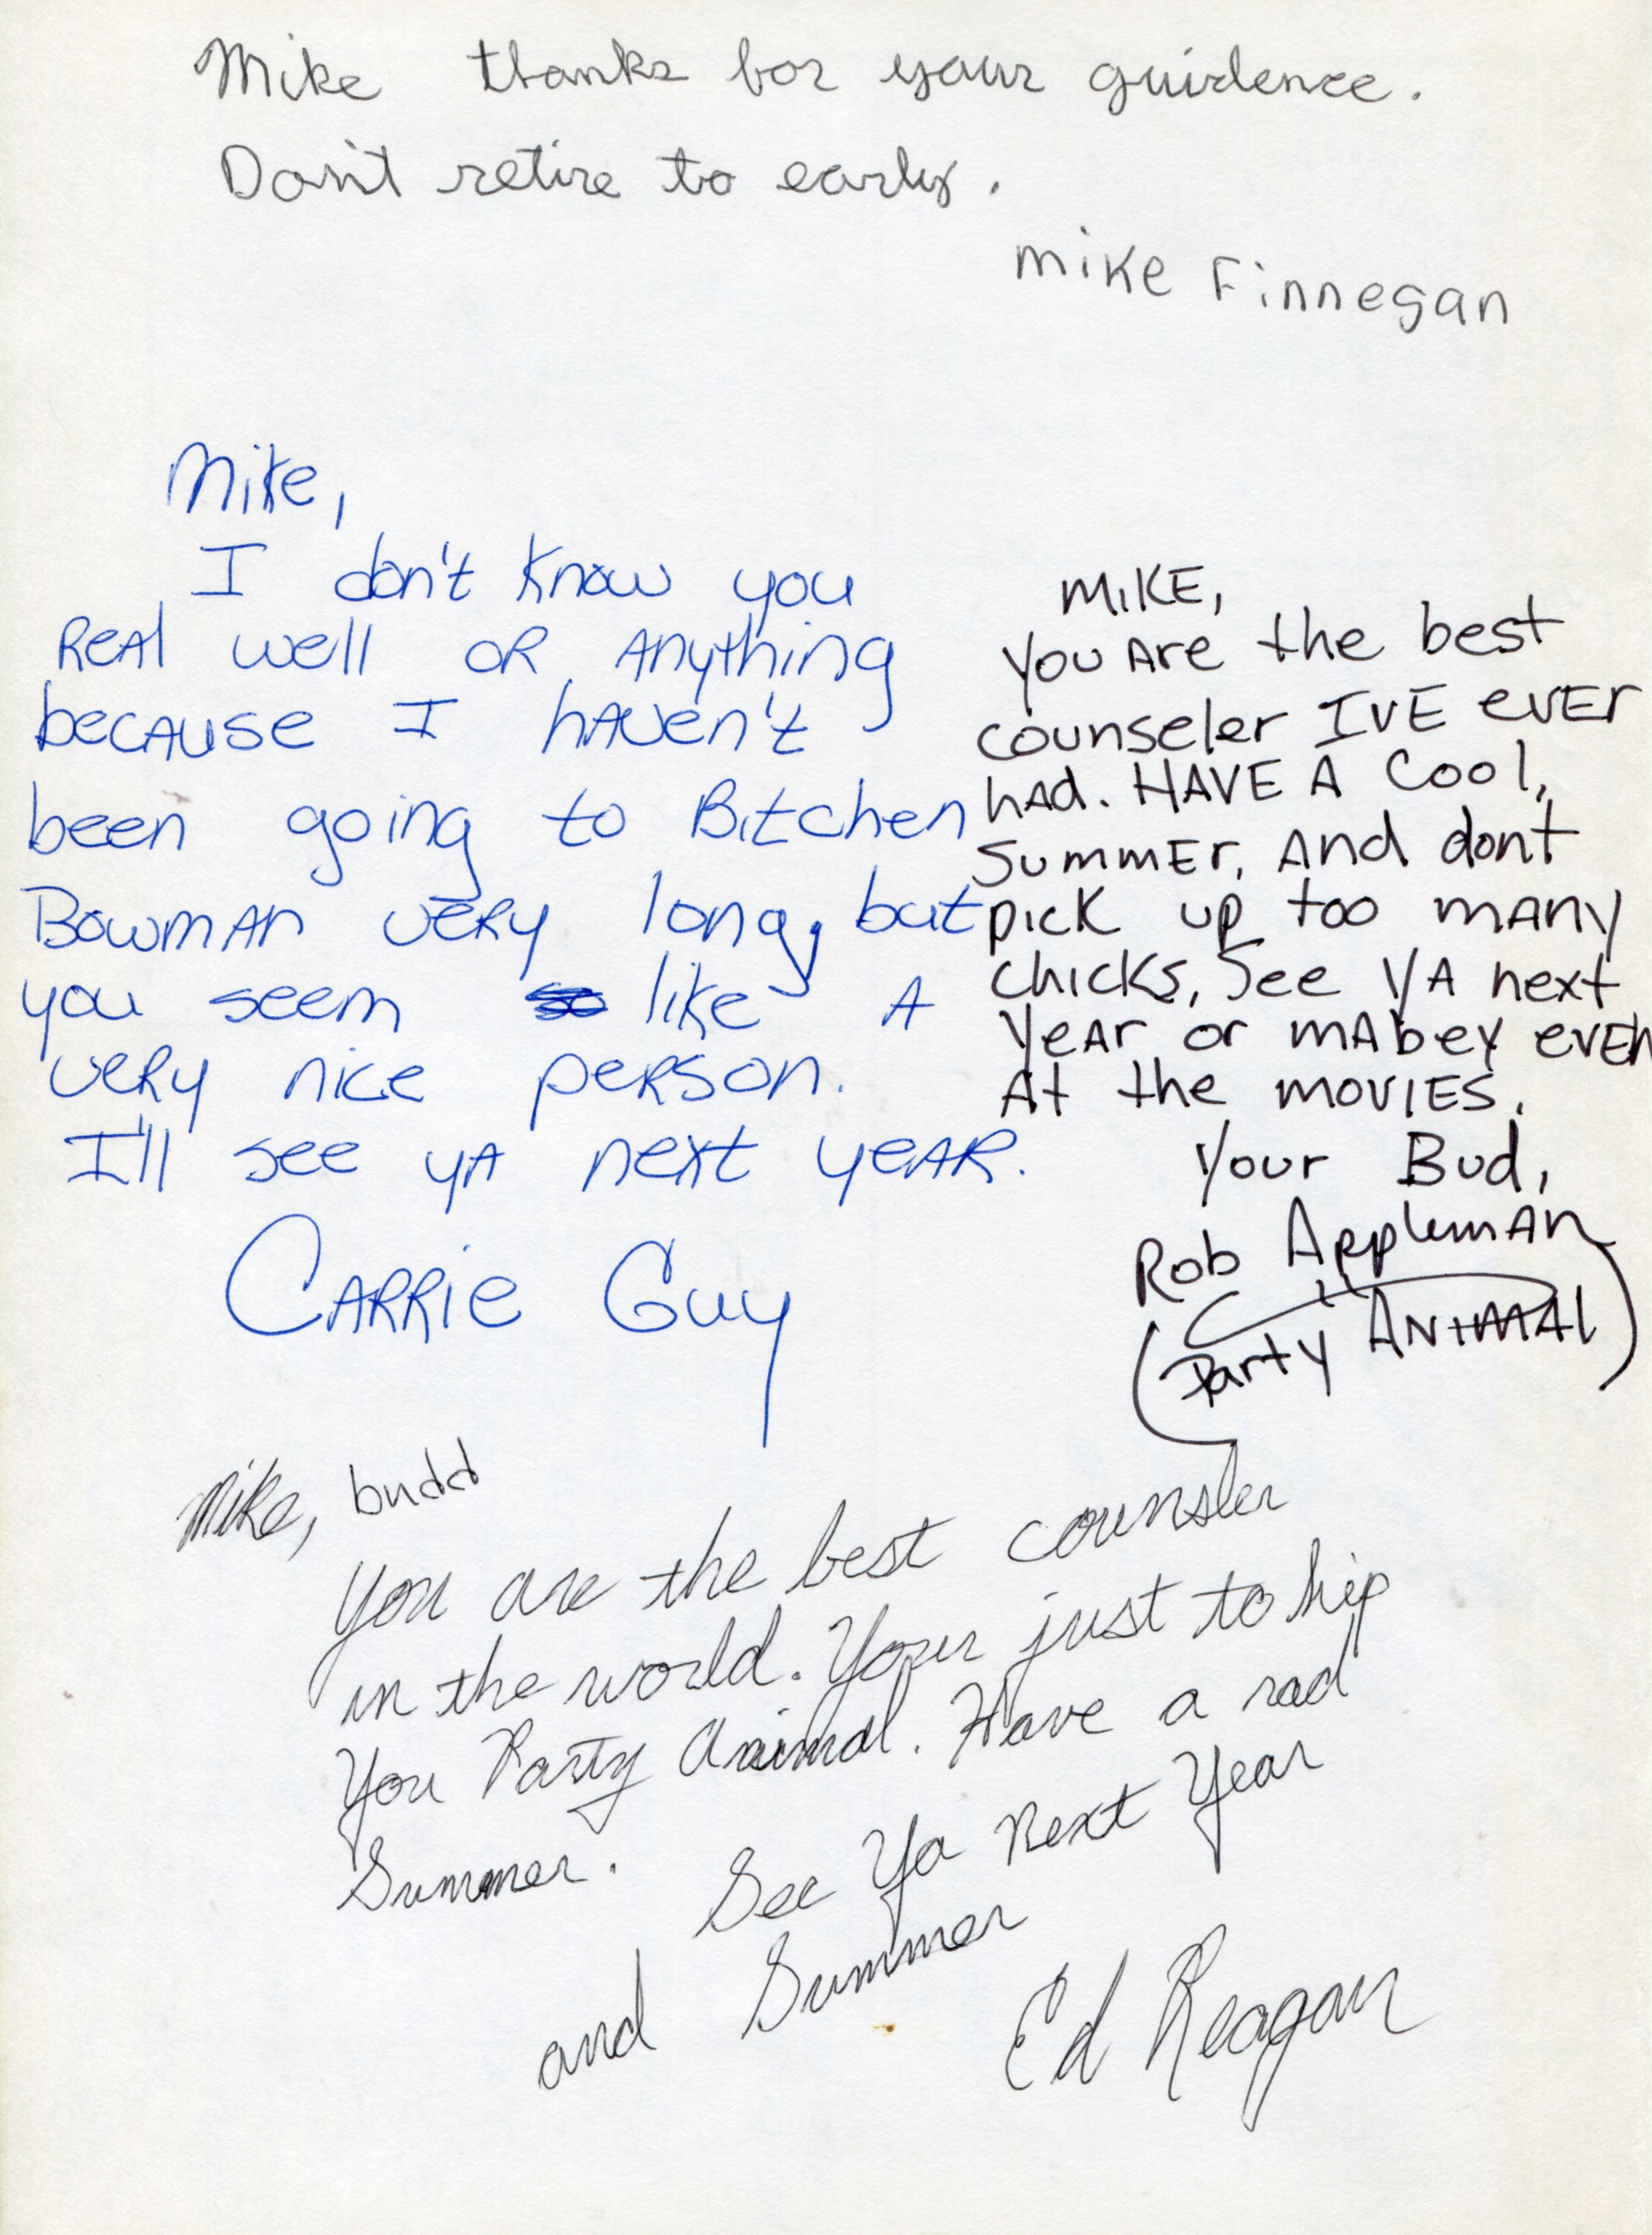 Mike thanks for your guidence.
Don't retire to early.
Mike Finnegan
Mike,
I don't know you
Real well or anything
because I haven't
been going to Bitchen
Bowman very long, but
you seem like a
very nice person.
I'll see ya next year.
Carrie Guy
MIKE,
You Are the best
counseler I'VE EVER
had. HAVE A Cool,
Summer, And dont
pick up too many
chicks, See YA next
Year or mAbey even
At the movies.
Your Bud,
Rob Appleman
(Party ANIMAL)
Mike, budd
You are the best counsler
in the world. Your just to hip
You Party Animal. Have a rad
Summer. See Ya Next Year
and Summer
Ed Reagan